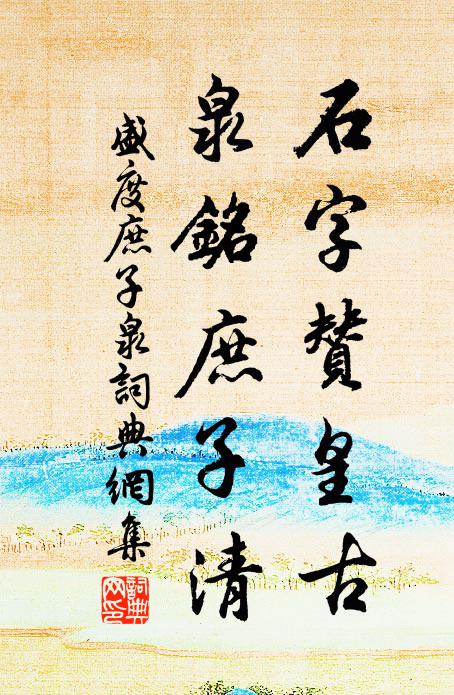 石字贊皇古
泉銘庶子清
盛度庶子泉詞典網集